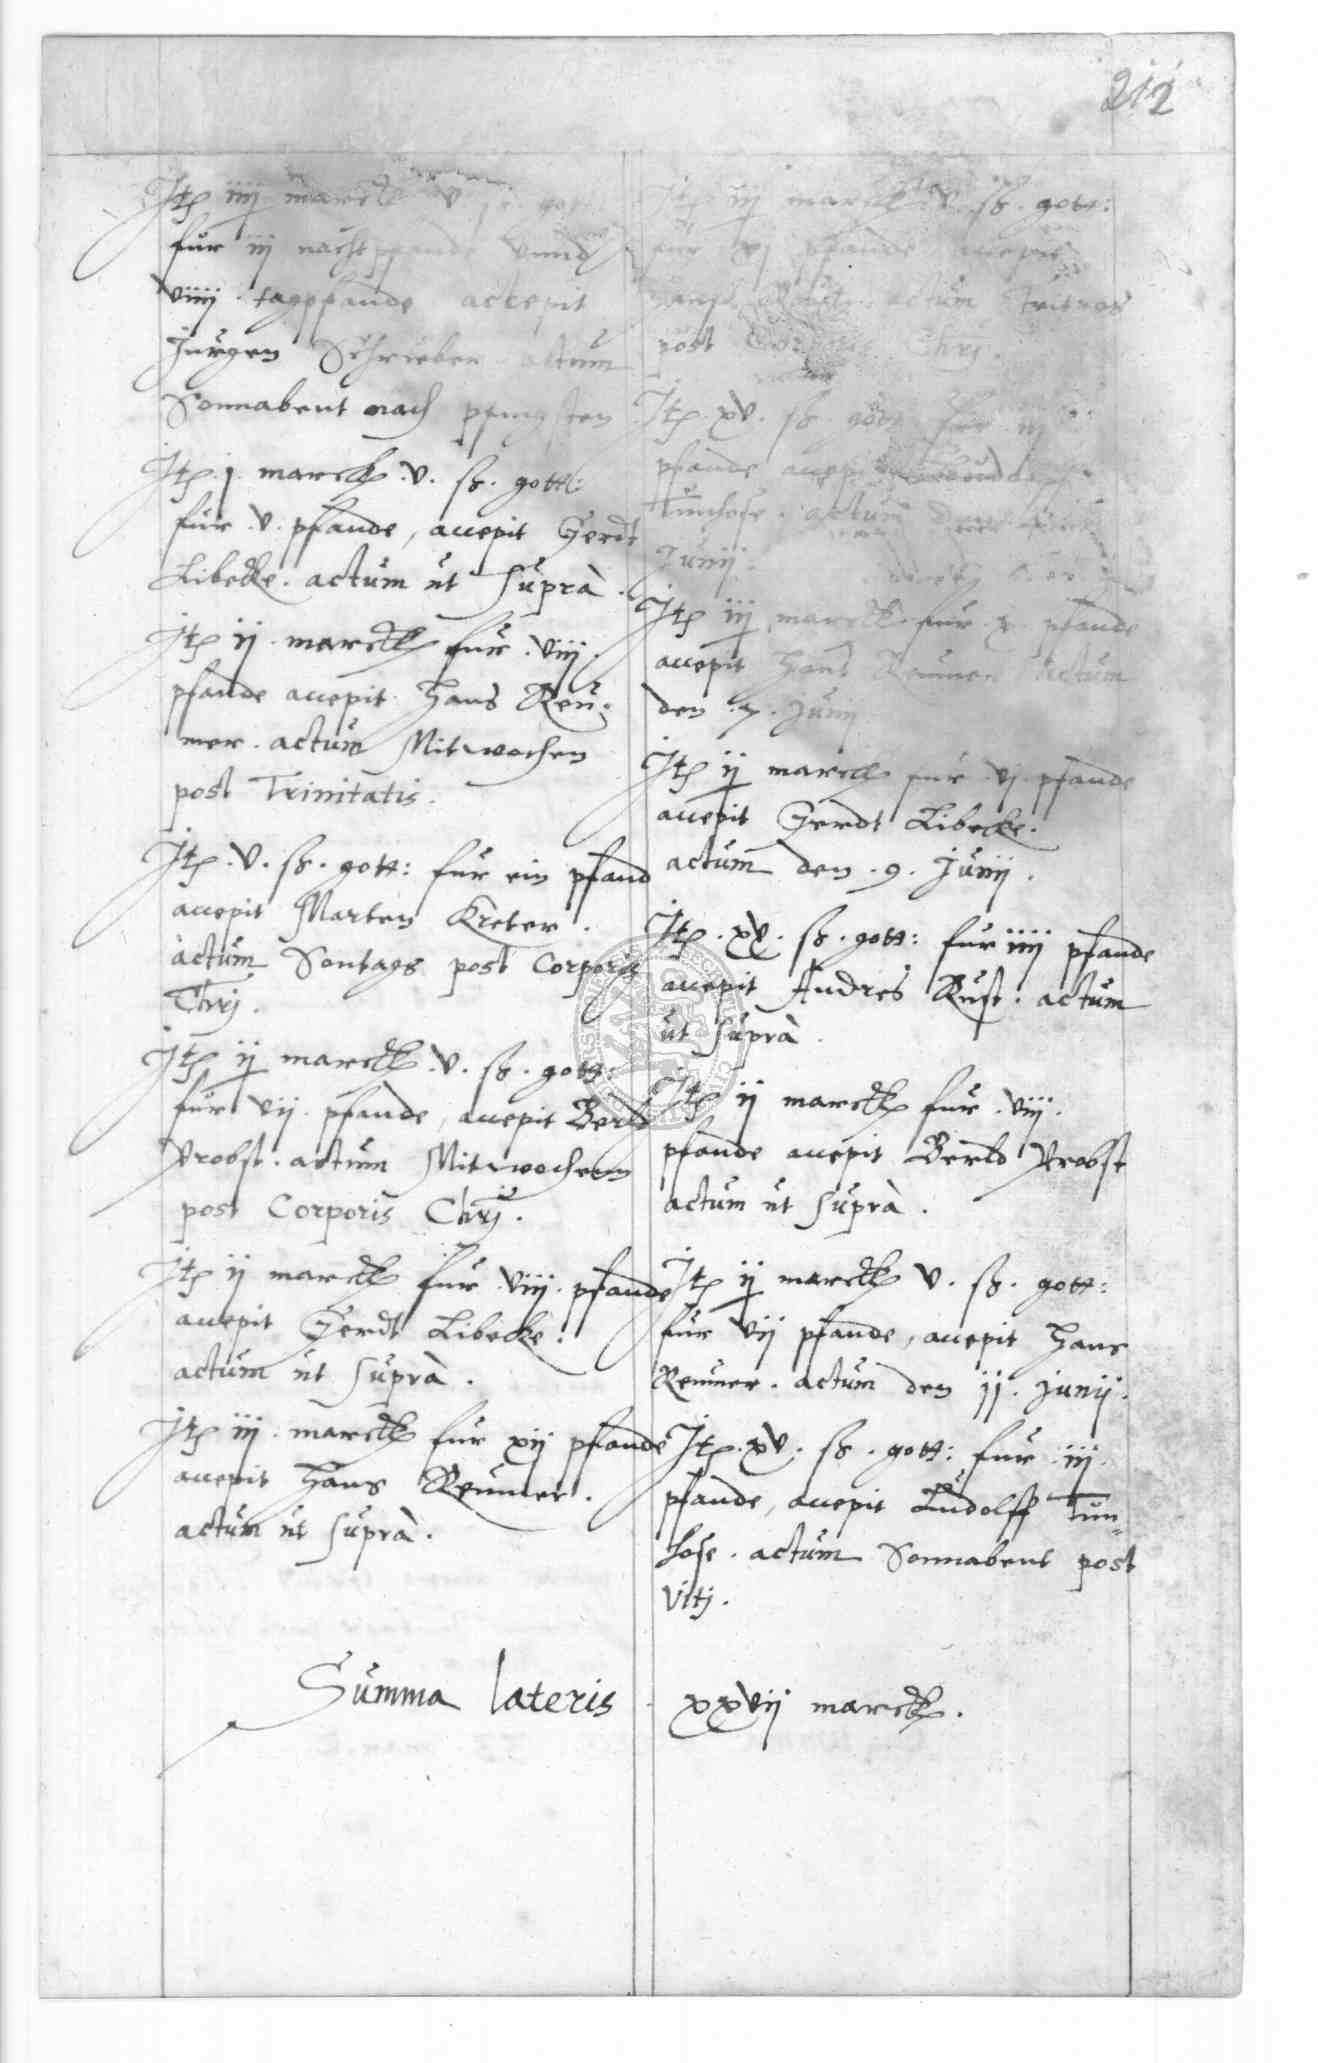 212
Itẽ iiij marck v ß. gott:
fur iij nachtpfande vnnd
viiij. tagpfande accepit
Jurgen Schrieber actum
Sonnabent nach pfingsten
Itẽ. j. marck. v. ß. gott:
fur. v. pfande, accepit Gerdt
Libecke. actum ut suprà.
Itẽ ij. marck fur. viij.
pfande accepit Hans Reu:
mer. actum Mitwochen
post Trinitatis.
Itẽ. v. ß. gott: fur ein pfand
accepit Marten Kreter.
actum Sontags post Corporis
Chrj.
Itẽ ij marck. v. ß. gott:
fur vij. pfande, accepit Berld
Probst. actum Mitwochenn
post Corporis Chrj.
Itẽ ij marck fur. viij. pfande
accepit Gerdt Libecke.
actum ut suprà.
Itẽ iij. marck fur xij pfande
accepit Hans Reumer.
actum ut suprà.
Itẽ iij marck. v. ß. gott:
fur xj pfande accepit
post Chrj.
Itẽ. xv. ß. gott fur iij
pfande accepit
Tunhose. actum
Junij.
Itẽ iij marck. fur. x. pfande
accepit Hans Reumer actum
den. 7. Junij
Itẽ ij marck fur. vj. pfande
accepit Gerdt Libecke.
actum den. 9. Junij.
Itẽ. xx. ß. gott: fur iiij pfande
accepit Andres Rust. actum
ut suprà.
Itẽ ij marck fur. viij.
pfande accepit Berld Probst
actum ut suprà.
Itẽ ij marck v. ß. gott:
fur vij pfande, accepit Hans
Reumer. actum den jj. Junij.
Itẽ. xv. ß. gott: fur iij
pfande, accepit Ludolff Tun=
hose. actum Sonnabent post
Vitj.
Summa lateris xxvij marck.